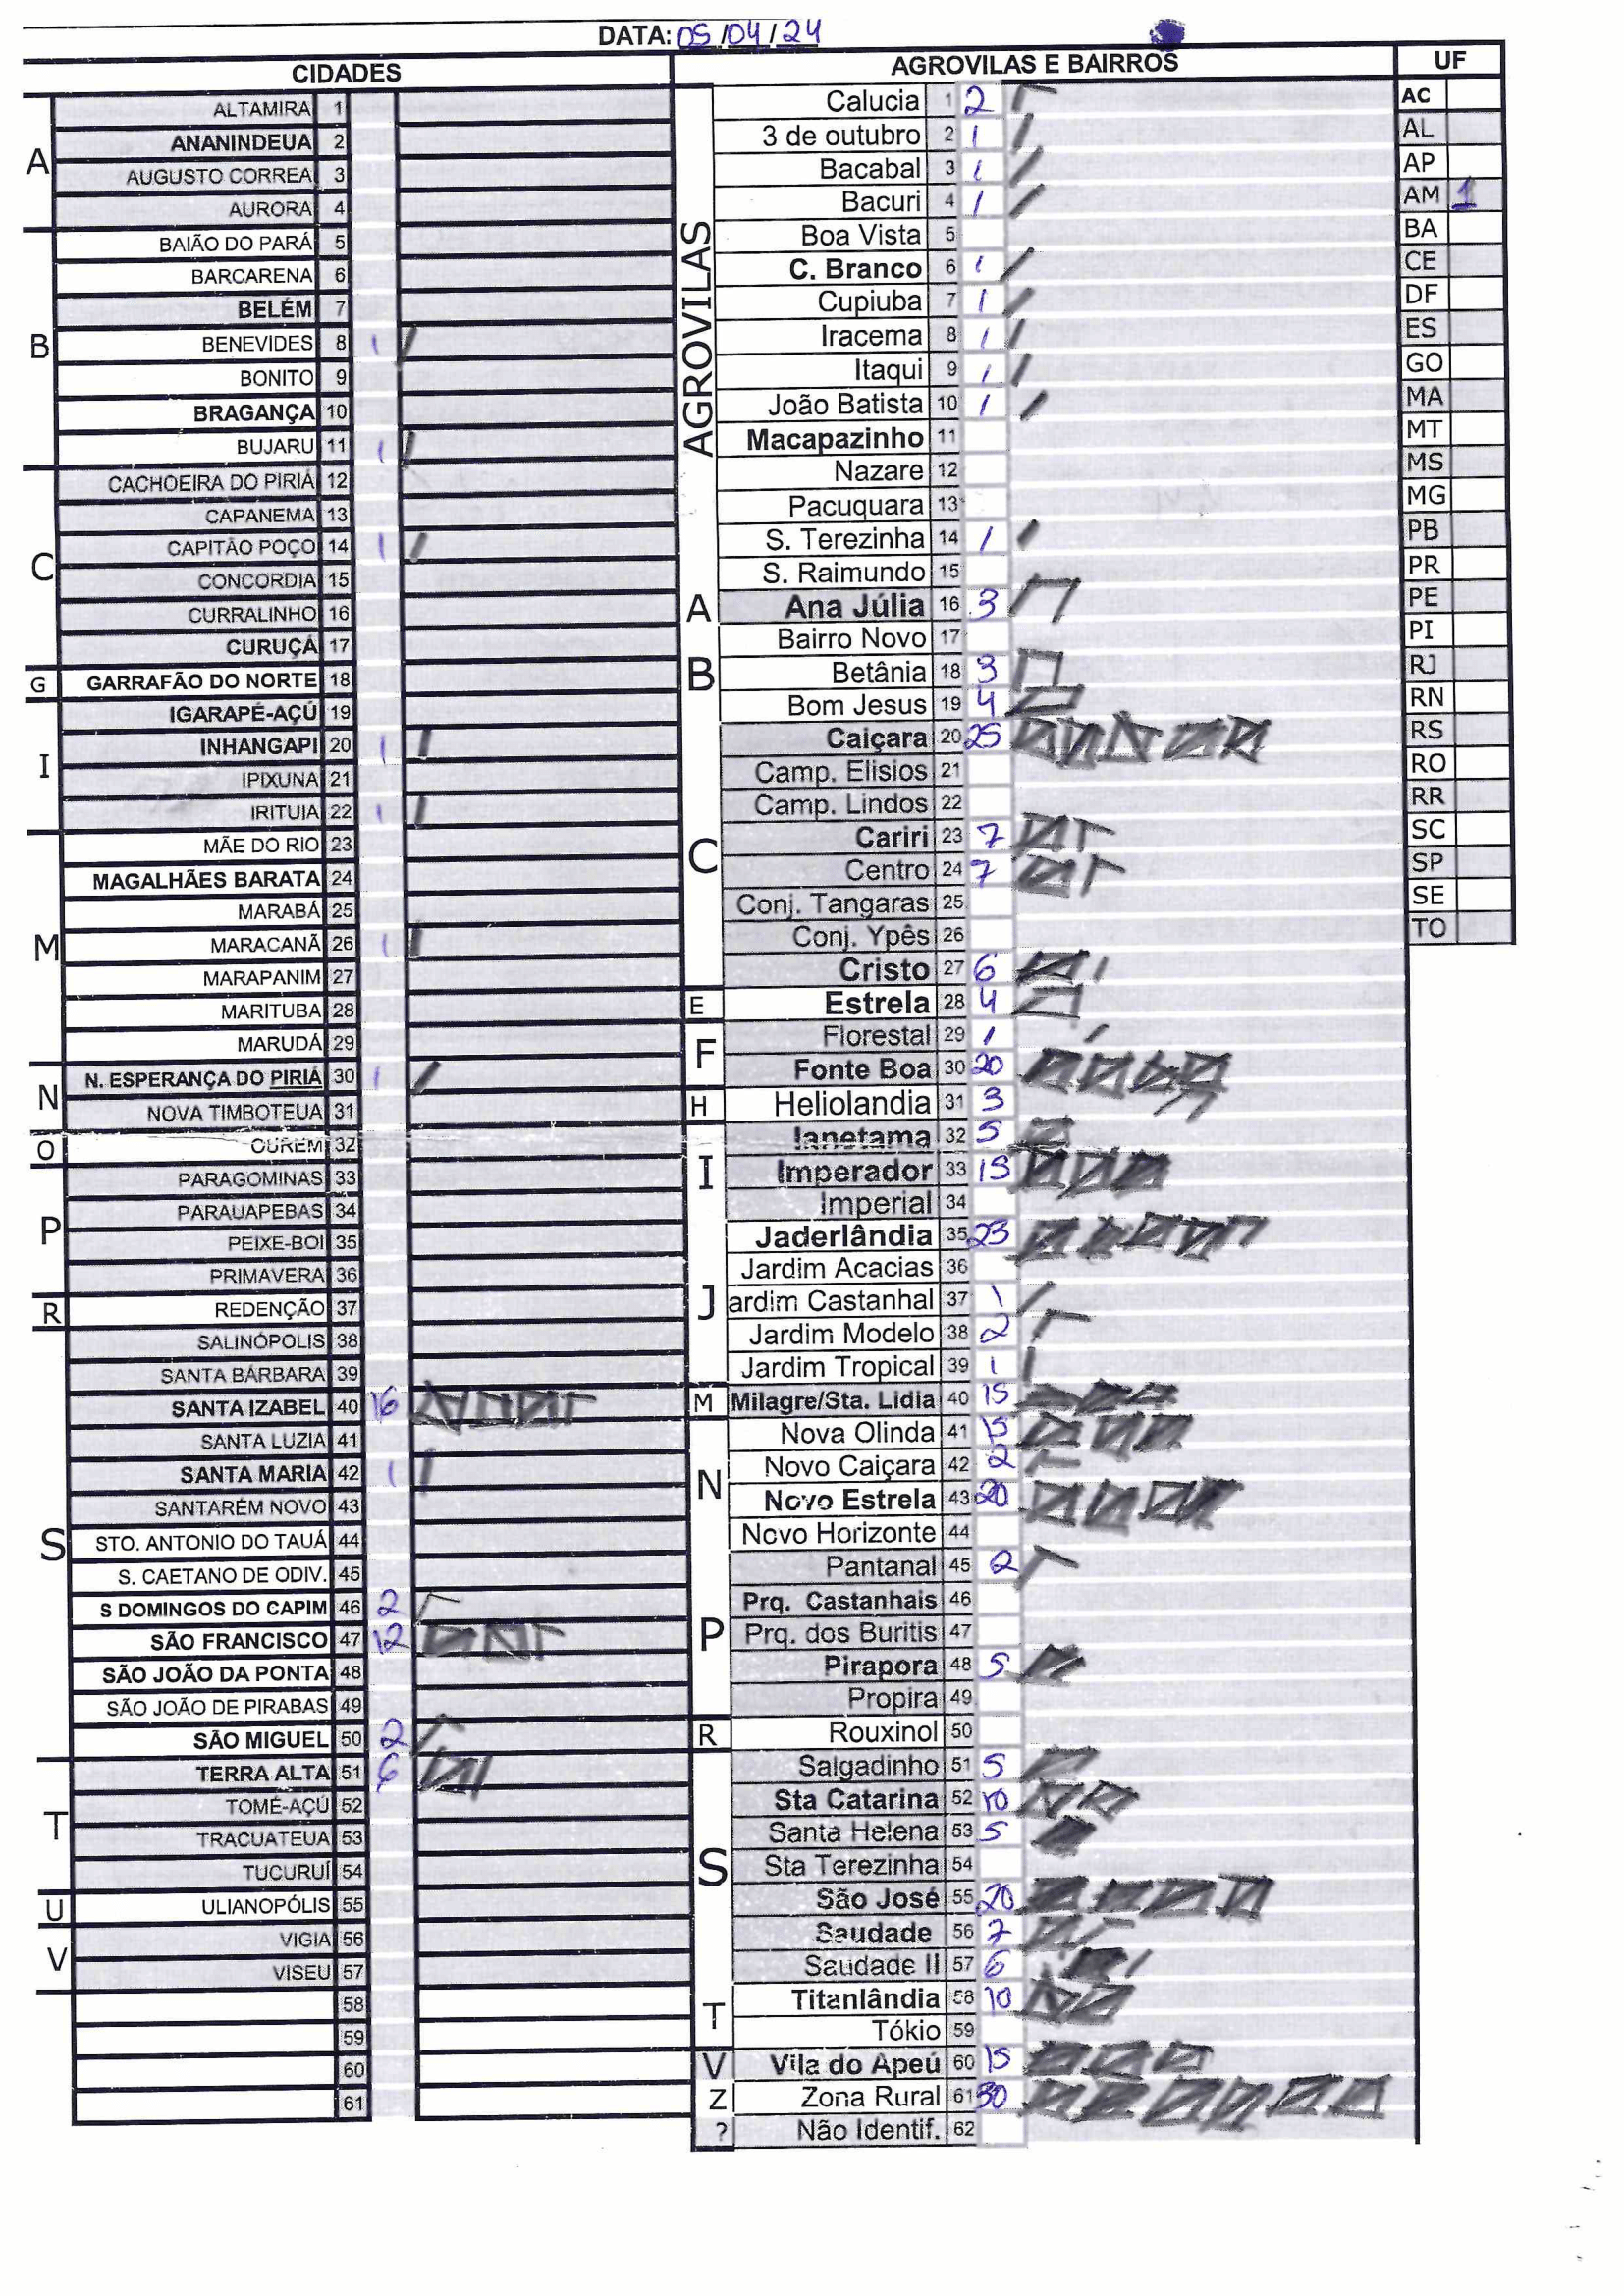 DATA: 05/04/24
CIDADES
A
ALTAMIRA 1
ANANINDEUA 2
AUGUSTO CORREA 3
AURORA 4
B
BAIÃO DO PARÁ 5
BARCARENA 6
BELÉM 7
BENEVIDES 8 1
BONITO 9
BRAGANÇA 10
BUJARU 11 1
C
CACHOEIRA DO PIRIÁ 12
CAPANEMA 13
CAPITÃO POÇO 14 1
CONCORDIA 15
CURRALINHO 16
CURUÇÁ 17
G
GARRAFÃO DO NORTE 18
I
IGARAPÉ-AÇÚ 19
INHANGAPI 20 1
IPIXUNA 21
IRITUIA 22 1
M
MÃE DO RIO 23
MAGALHÃES BARATA 24
MARABÁ 25
MARACANÃ 26 1
MARAPANIM 27
MARITUBA 28
MARUDÁ 29
N
N. ESPERANÇA DO PIRIÁ 30 1
NOVA TIMBOTEUA 31
O
OURÉM 32
P
PARAGOMINAS 33
PARAUAPEBAS 34
PEIXE-BOI 35
PRIMAVERA 36
R
REDENÇÃO 37
S
SALINÓPOLIS 38
SANTA BÁRBARA 39
SANTA IZABEL 40 16
SANTA LUZIA 41
SANTA MARIA 42 1
SANTARÉM NOVO 43
STO. ANTONIO DO TAUÁ 44
S. CAETANO DE ODIV. 45
S DOMINGOS DO CAPIM 46 2
SÃO FRANCISCO 47 12
SÃO JOÃO DA PONTA 48
SÃO JOÃO DE PIRABAS 49
SÃO MIGUEL 50 2
T
TERRA ALTA 51 6
TOMÉ-AÇÚ 52
TRACUATEUA 53
TUCURUÍ 54
U
ULIANOPÓLIS 55
V
VIGIA 56
VISEU 57
58
59
60
61
AGROVILAS E BAIRROS
AGROVILAS
Calucia 1 2
3 de outubro 2 1
Bacabal 3 1
Bacuri 4 1
Boa Vista 5
C. Branco 6 1
Cupiuba 7 1
Iracema 8 1
Itaqui 9 1
João Batista 10 1
Macapazinho 11
Nazare 12
Pacuquara 13
S. Terezinha 14 1
S. Raimundo 15
A
Ana Júlia 16 3
B
Bairro Novo 17
Betânia 18 3
Bom Jesus 19 4
C
Caiçara 20 25
Camp. Elisios 21
Camp. Lindos 22
Cariri 23 7
Centro 24 7
Conj. Tangaras 25
Conj. Ypês 26
Cristo 27 6
E
Estrela 28 4
F
Florestal 29 1
Fonte Boa 30 20
H
Heliolandia 31 3
I
Ianetama 32 5
Imperador 33 15
Imperial 34
J
Jaderlândia 35 23
Jardim Acacias 36
ardim Castanhal 37 1
Jardim Modelo 38 2
Jardim Tropical 39 1
M
Milagre/Sta. Lidia 40 15
N
Nova Olinda 41 15
Novo Caiçara 42 2
Novo Estrela 43 20
Novo Horizonte 44
P
Pantanal 45 2
Prq. Castanhais 46
Prq. dos Buritis 47
Pirapora 48 5
Propira 49
R
Rouxinol 50
S
Salgadinho 51 5
Sta Catarina 52 10
Santa Helena 53 5
Sta Terezinha 54
São José 55 20
Saudade 56 7
Saudade II 57 6
T
Titanlândia 58 10
Tókio 59
V
Vila do Apeú 60 15
Z
Zona Rural 61 30
?
Não Identif. 62
UF
AC
AL
AP
AM 1
BA
CE
DF
ES
GO
MA
MT
MS
MG
PB
PR
PE
PI
RJ
RN
RS
RO
RR
SC
SP
SE
TO